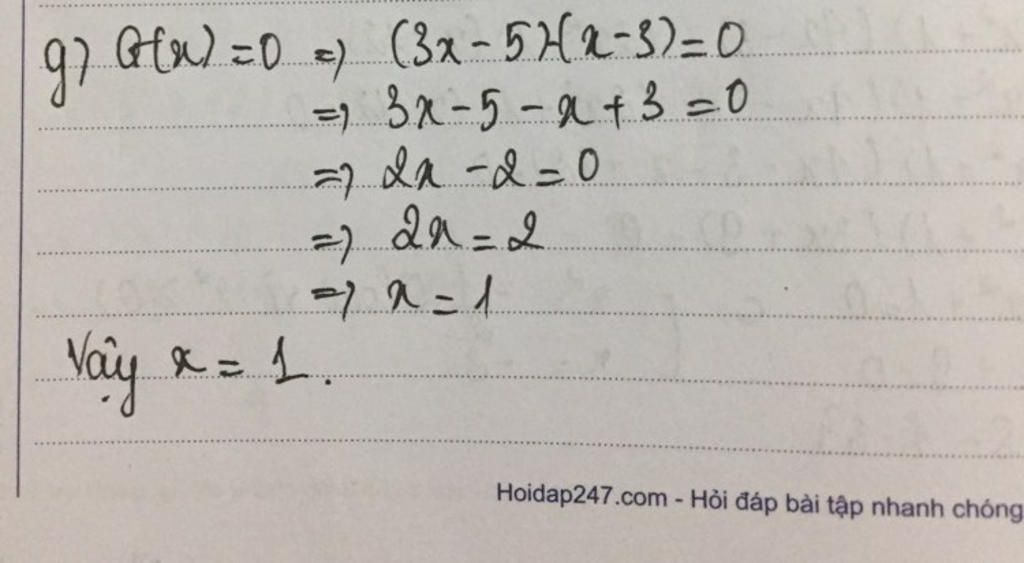 g) G(x) = 0 => (3x - 5) - (x - 3) = 0
=> 3x - 5 - x + 3 = 0
=> 2x - 2 = 0
=> 2x = 2
=> x = 1
Vậy x = 1.
Hoidap247.com - Hỏi đáp bài tập nhanh chóng